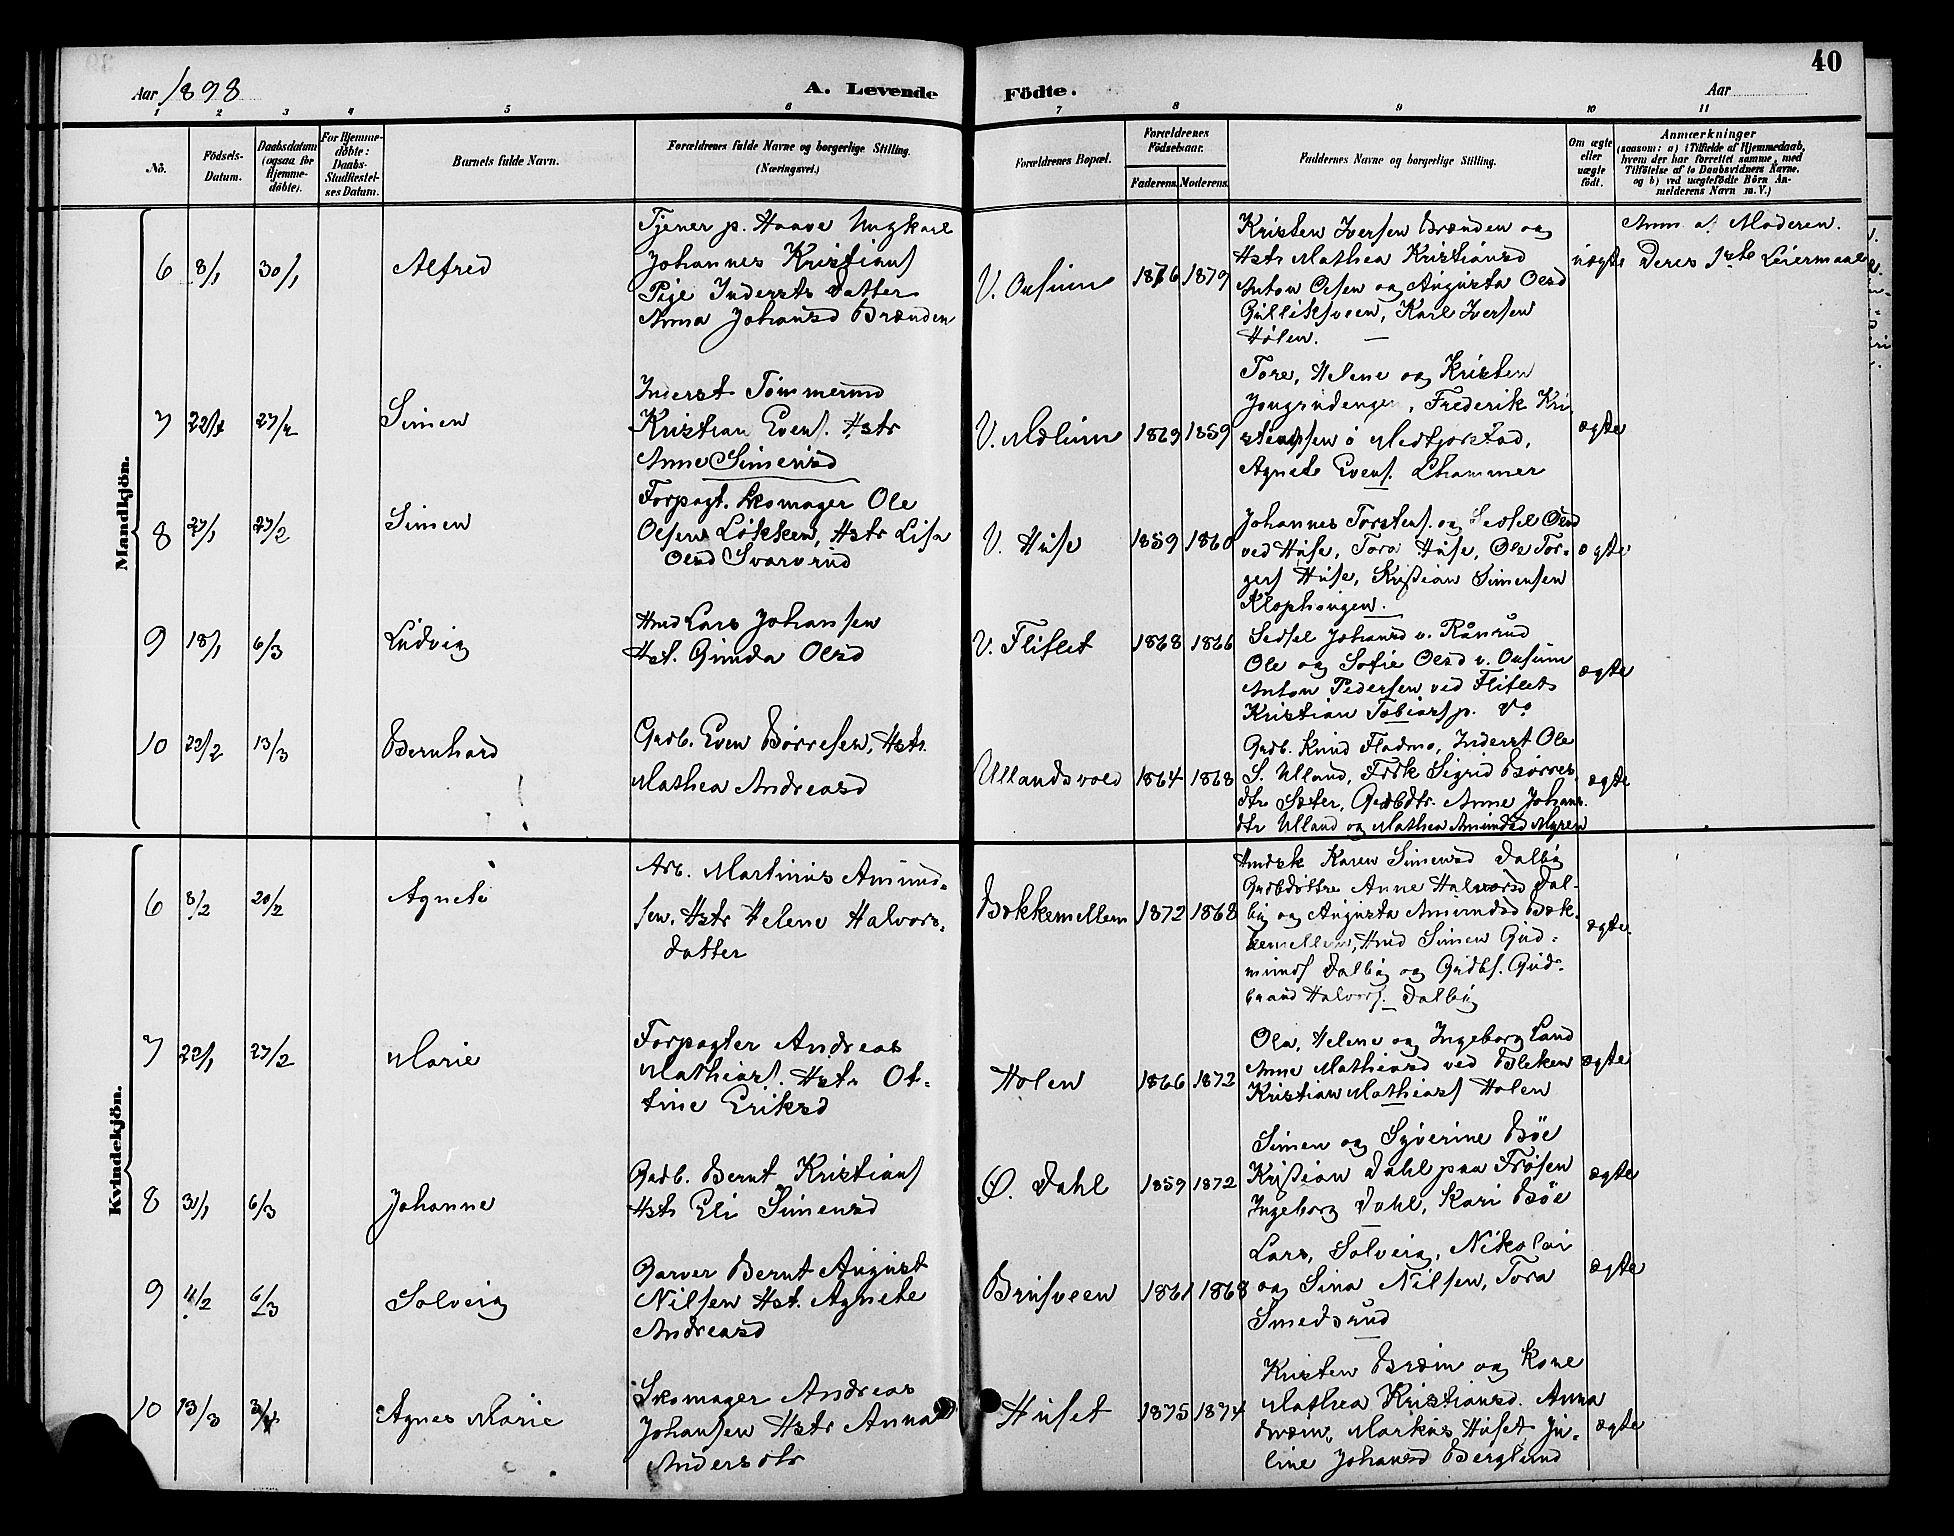 40
Aar 1898
A. Levende
Födte.
Aar
1 2 3 4 5 6 7 8 9 10 11
No.
Födsels-
Datum.
Daabsdatum
(ogsaa for
Hjemme-
döbte).
For Hjemme-
döbte:
Daabs-
Stadfæstel-
ses Datum.
Barnets fulde Navn.
Forældrenes fulde Navne og borgerlige Stilling.
(Næringsvei.)
Forældrenes Bopæl.
Forældrenes
Födselsaar.
Faderens. Moderens.
Faddernes Navne og borgerlige Stilling.
Om ægte
eller
uægte
födt.
Anmærkninger
(saasom: a) i Tilfælde af Hjemmedaab,
hvem der har forrettet samme, med
Tilföielse af to Daabsvidners Navne.
og b) ved uægtefödte Börn An-
melderens Navn m. V.)
Mandkjön.
6 8/1 30/1 Alfred
Tjener p. Haave Ungkarl
Johannes Kristians
Pige Indersts datter
Anna Johansd Brænden
V. Ousum 1876 1879
Kristen Iversen Brænden og
Hstr Mathea Kristiansd
Anton Olsen og Augusta Olsd
Gulliksveen, Karl Iversen
Hølen.
uægte
Anm. af Moderen.
Deres 1ste Leiermaal
7 22/1 27/2 Simen
Inderst Tømmermd
Kristian Evens. Hstr
Anne Simensd
V. Mælum 1869 1859
Tore, Helene og Kristen
Frederik Kri
stiansen
Agnete Evens. Lhammer
ægte
8 27/1 27/2 Simen
Forpagt. Skomager Ole
Olsen Løkken, Hstr Lisa
Olsd Svarvrud
V. Huse 1859 1860
Johannes Torstens. og Sedsel Olsd
ved Huse, Tora Huse, Ole Tor-
gers Huse, Kristian Simensen
Klophougen.
ægte
9 18/1 6/3 Ludvig
Hmd Lars Johansen
Hst. Gunda Olsd
V. Fliflet 1868 1866
Sedsel Johansd v. Rånrud
Ole og Sofie Olsd v. Ousum
Anton Pedersen ved Fliflet
Kristian Tobiass p. Do
ægte
10 22/2 13/3 Bernhard
Grdb. Even Børresen, Hstr.
Mathea Andreasd
Ullandsvold 1864 1868
Grdb. Knud Fladmo, Inderst Ole
S. Ulland, Frøk Sigrid Børres-
dtr Sæter, Grdbdtr. Anne Johans
dtr Ulland og Mathea Amundsd Myren
ægte
Kvindekjön.
6 8/2 20/2 Agnete
Arb. Martinus Amund-
sen, Hstr Helene Halvors-
datter
Bækkemellem 1872 1868
Karen Simensd Dalby
Grdbdøttre Anne Halvorsd Dal-
by og Augusta Amundsd Bæk-
kemellem, Hmd Simen Gud-
munds Dalby og Grdbs. Gud-
brand Halvors. Dalby
ægte.
7 22/1 27/2 Marie
Forpagter Andreas
Mathiass. Hstr Ot-
tine Eriksd
Holen 1866 1872
Ola, Helene og Ingeborg Land
Anne Mathiasd ved Bleken
Kristian Mathiass Holen
ægte
8 31/1 6/3 Johanne
Grdb. Bernt Kristians
Hstr Eli Simensd
Ø. Dahl 1859 1872
Simen og Syverine Bøe
Kristian Dahl paa Frøsen
Ingeborg Dahl, Kari Bøe
ægte
9 4/2 6/3 Solveig
Garver Bernt August
Nilsen Hst. Agnete
Andreasd
Brusveen 1861 1868
Lars, Solveig, Nikolai
og Sina Nilsen, Tora
Smedsrud
ægte
10 13/3 3/4 Agnes Marie
Skomager Andreas
Johansen Hstr Anna
Andersdtr
Huset 1875 1874
Kristen Bræin og Kone
Mathea Kristiansd. Anna
Bræin, Markus Huset Ju-
line Johansd Berglund
ægte